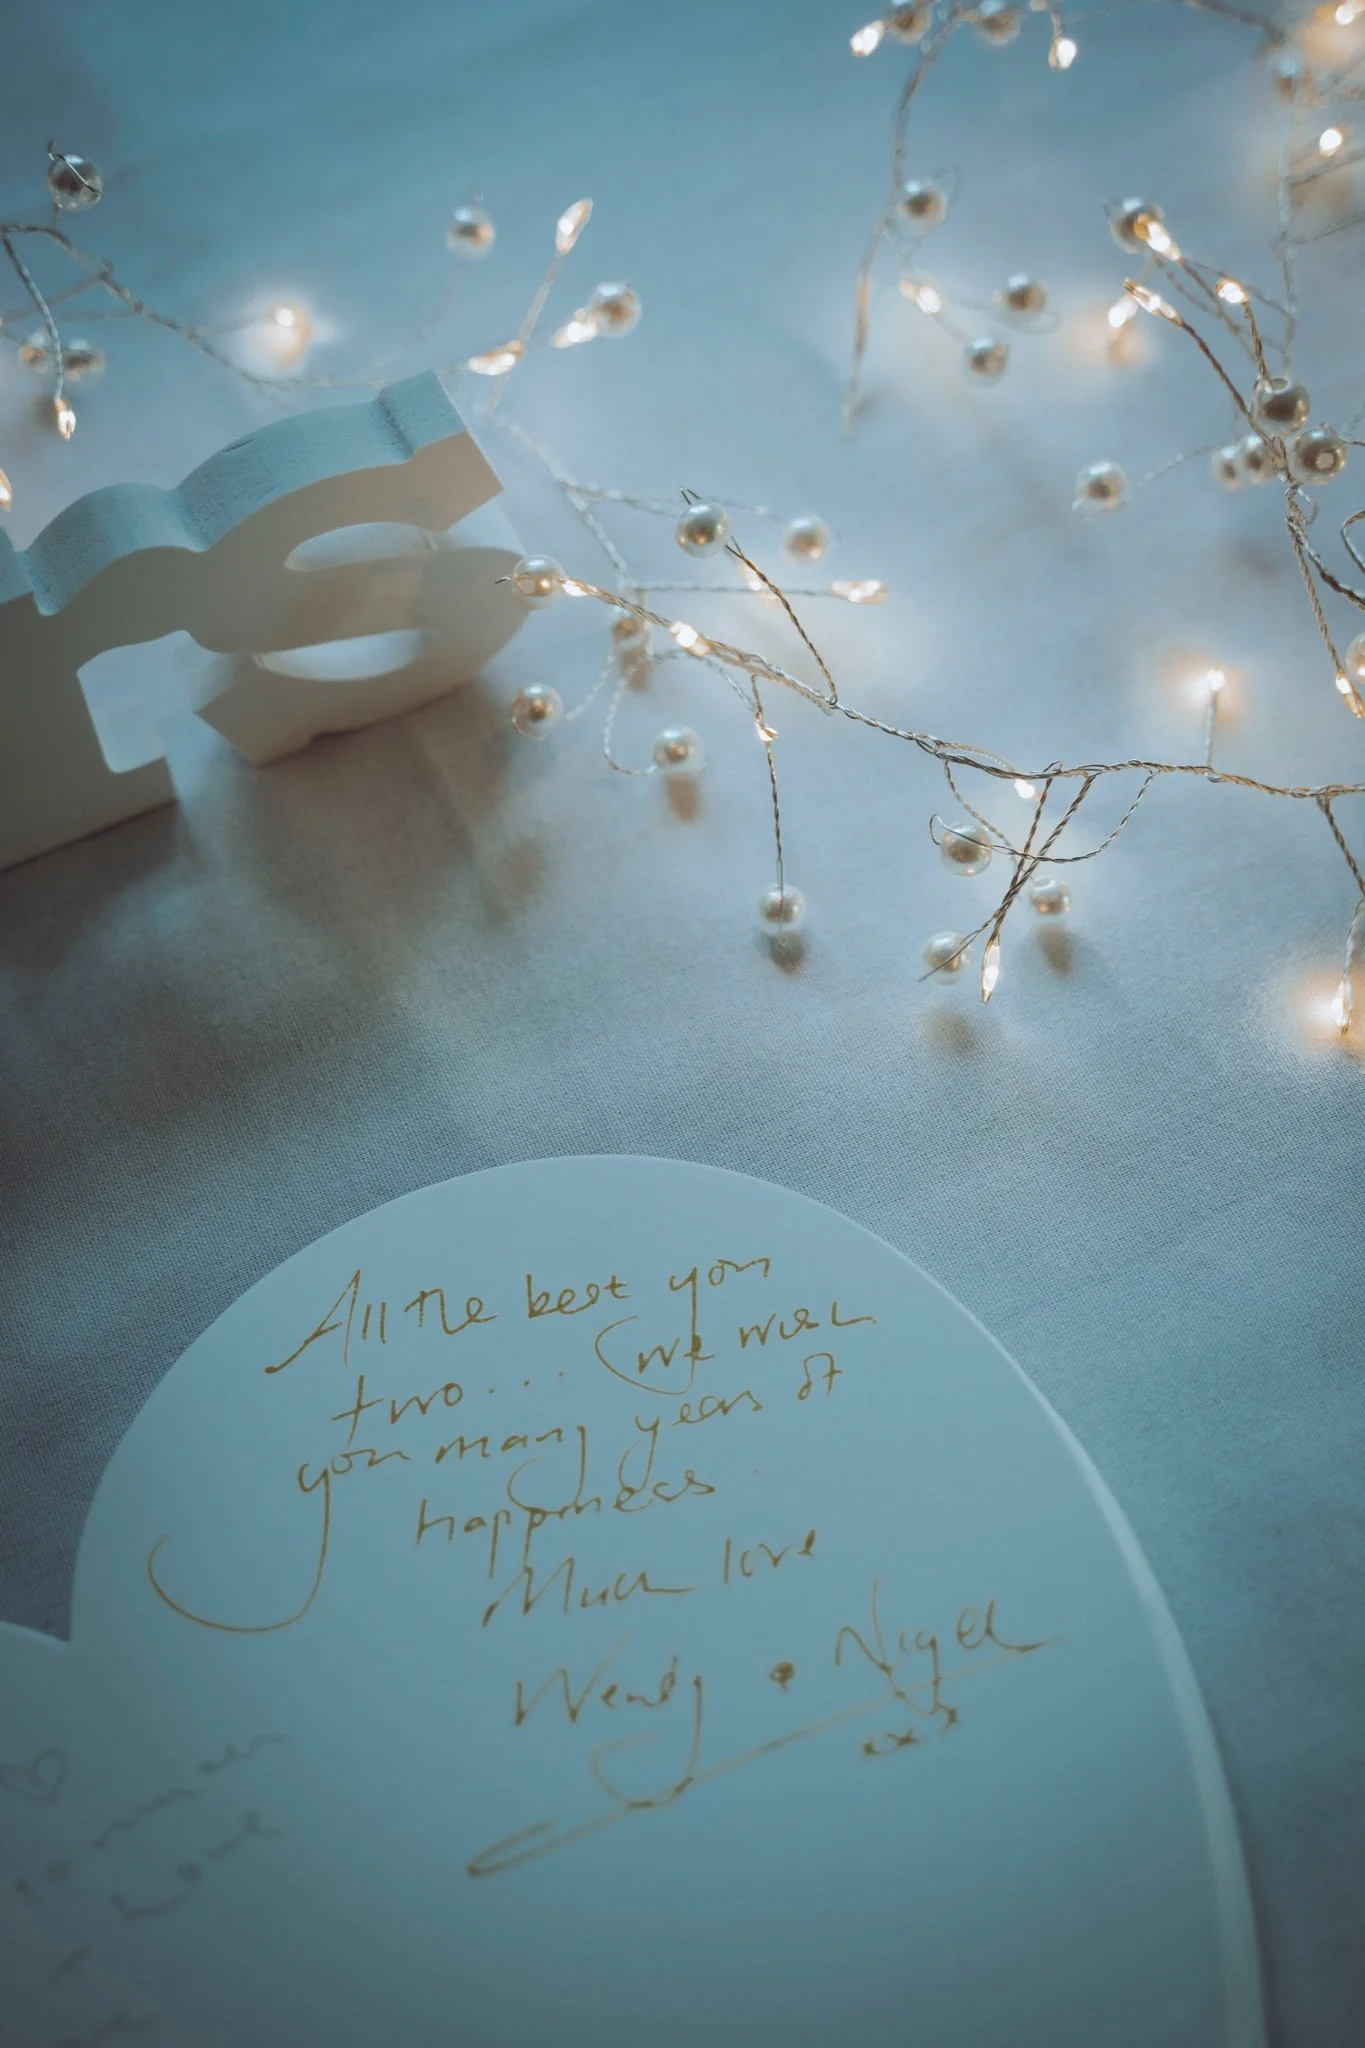 All the best you
two... (we wish
you many years of
happiness.
Much love
Wendy • Nigel
xxx